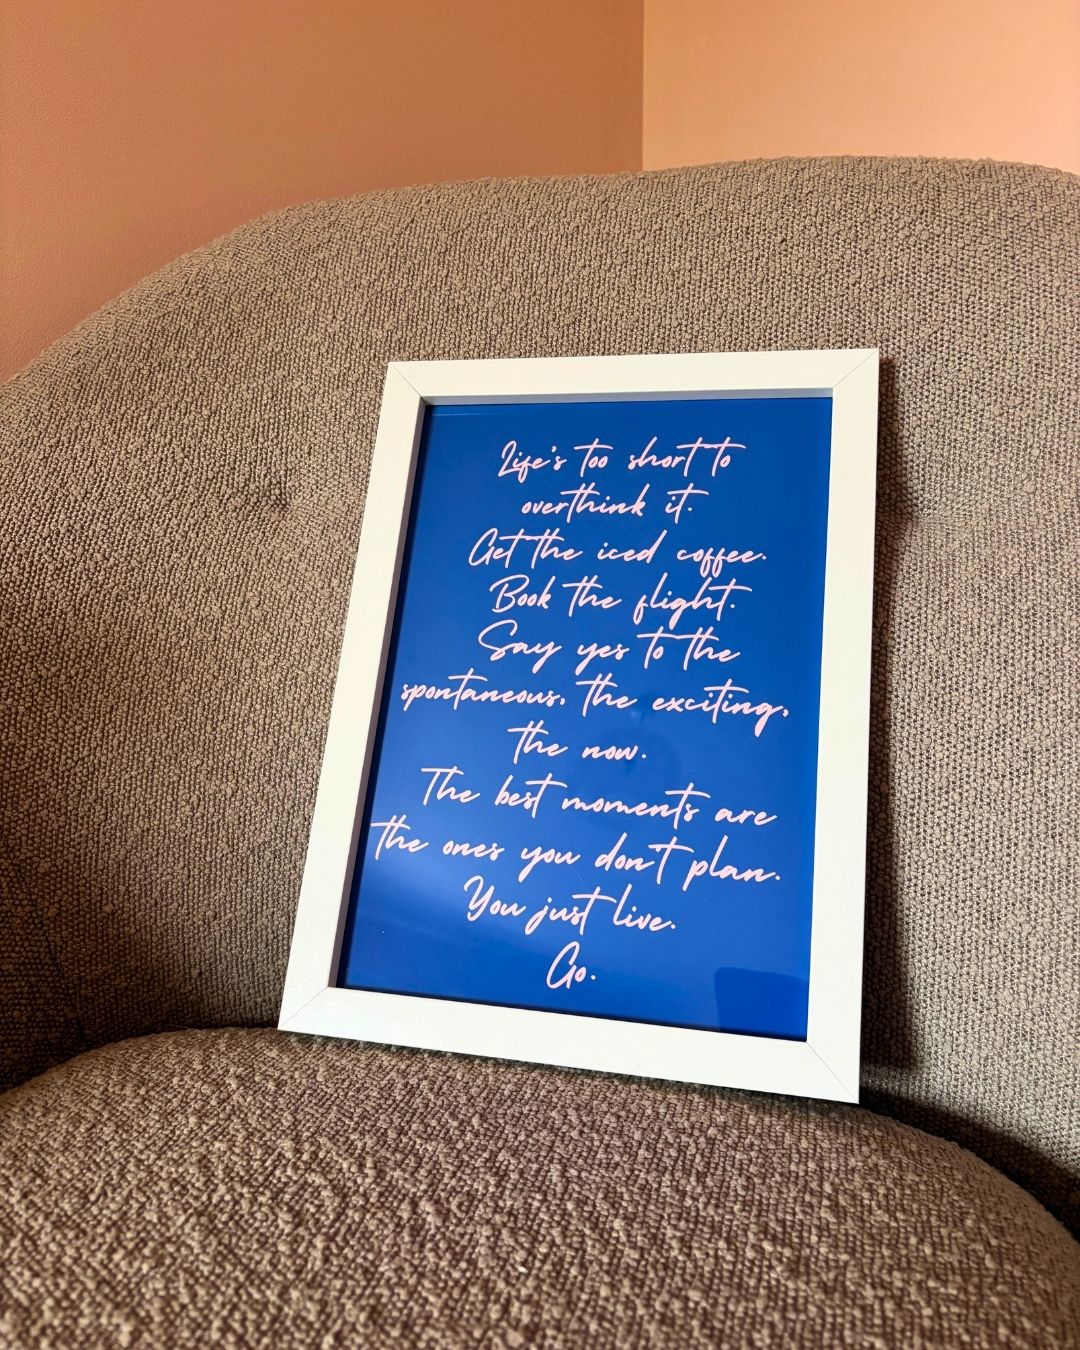 Life's too short to
overthink it.
Get the iced coffee.
Book the flight.
Say yes to the
spontaneous, the exciting,
the now.
The best moments are
the ones you don't plan.
You just live.
Go.